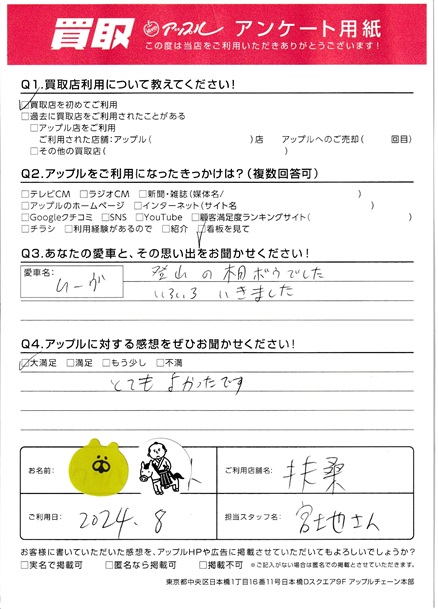 買取 アップル アンケート用紙
この度は当店をご利用いただきありがとうございます！
Q1.買取店利用について教えてください！
□買取店を初めてご利用
□過去に買取店をご利用されたことがある
□アップル店をご利用
ご利用された店舗：アップル（ ）店 アップルへのご売却（ 回目）
□その他の買取店（ ）
Q2.アップルをご利用になったきっかけは？（複数回答可）
□テレビCM □ラジオCM □新聞・雑誌（媒体名/ ）
□アップルのホームページ □インターネット（サイト名 ）
□Googleクチコミ □SNS □YouTube □顧客満足度ランキングサイト（ ）
□チラシ □利用経験があるので □紹介 □看板を見て
Q3.あなたの愛車と、その思い出をお聞かせください！
愛車名：
ムーヴ
登山の相ボウでした
いろいろ いきました
Q4.アップルに対する感想をぜひお聞かせください！
□大満足 □満足 □もう少し □不満
とても よかったです
お名前：
ご利用店舗名：
扶桑
ご利用日：
2024.8
担当スタッフ名：
宮地さん
お客様に書いていただいた感想を、アップルHPや広告に掲載させていただいてもよろしいでしょうか？
□実名で掲載可 □匿名なら掲載可 □掲載不可 ※ご記入がない場合は匿名での掲載とさせていただきます。
東京都中央区日本橋1丁目16番11号日本橋Dスクエア9F アップルチェーン本部